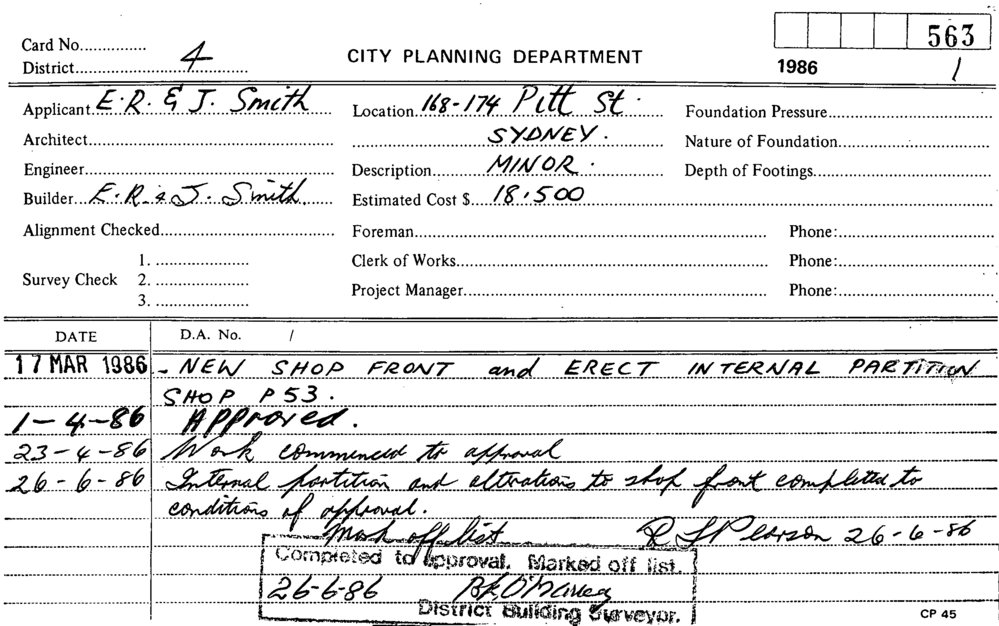 563
Card No.
District 4
CITY PLANNING DEPARTMENT
1986 /
Applicant E. R. & J. Smith
Location 168-174 Pitt St.
Foundation Pressure
Architect
SYDNEY.
Nature of Foundation
Engineer
Description MINOR.
Depth of Footings
Builder E. R. & J. Smith
Estimated Cost $ 18.500
Alignment Checked
Foreman
Phone:
Survey Check
1.
2.
3.
Clerk of Works
Phone:
Project Manager
Phone:
DATE
D.A. No. /
17 MAR 1986 - NEW SHOP FRONT and ERECT INTERNAL PARTITION
SHOP P53.
1-4-86 APProved.
23-4-86 Work commenced to approval
26-6-86 Internal partition and alterations to shop front completed to
conditions of approval.
Mark off list
Pearson 26-6-86
Completed to approval. Marked off list.
26-6-86
District Building Surveyor.
CP 45